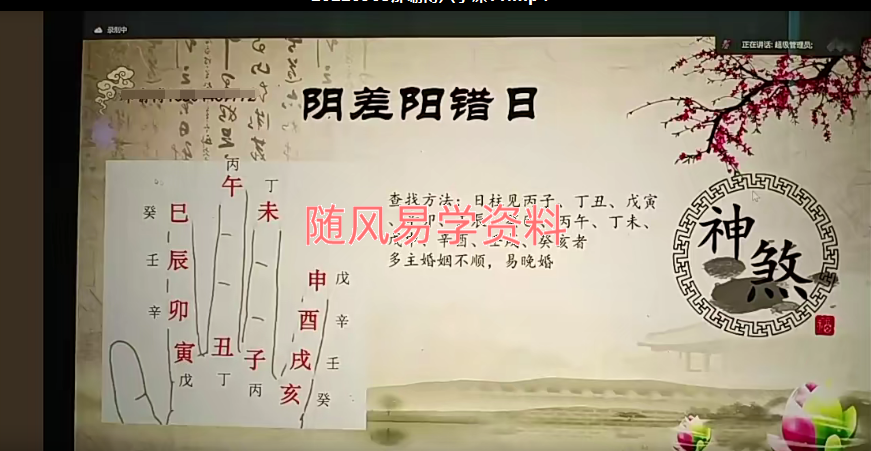 录制中
正在讲话: 超级管理员;
阴差阳错日
丙
午
丁
未
癸
巳
壬
辰
辛
卯
寅
戊
丑
丁
子
丙
申
戊
酉
辛
戌
壬
亥
癸
查找方法：日柱见丙子、丁丑、戊寅
丙午、丁未、
辛酉、
癸亥者
多主婚姻不顺，易晚婚
随风易学资料
神煞